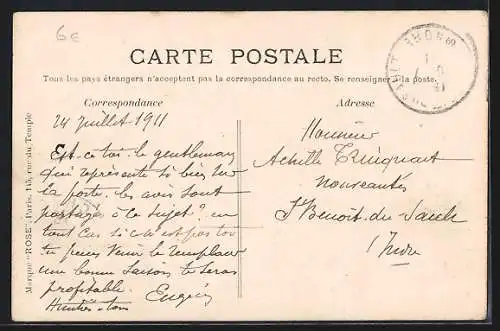 6€
CARTE POSTALE
Tous les pays étrangers n'acceptent pas la correspondance au recto. Se renseigner à la poste.
Correspondance
24 juillet 1911
Est-ce toi le gentleman
qui représente si bien sur
la poste. les avis sont
partagés à ce sujet? en
tout cas si c'est pas toi
tu peux venir le remplacer
une bonne saison te sera
profitable.
Eugène
Adresse
Monsieur
Achille
Nouveautés
St Benoit-du-Sault
Indre
Marque "ROSE", Paris, 145, rue du Temple